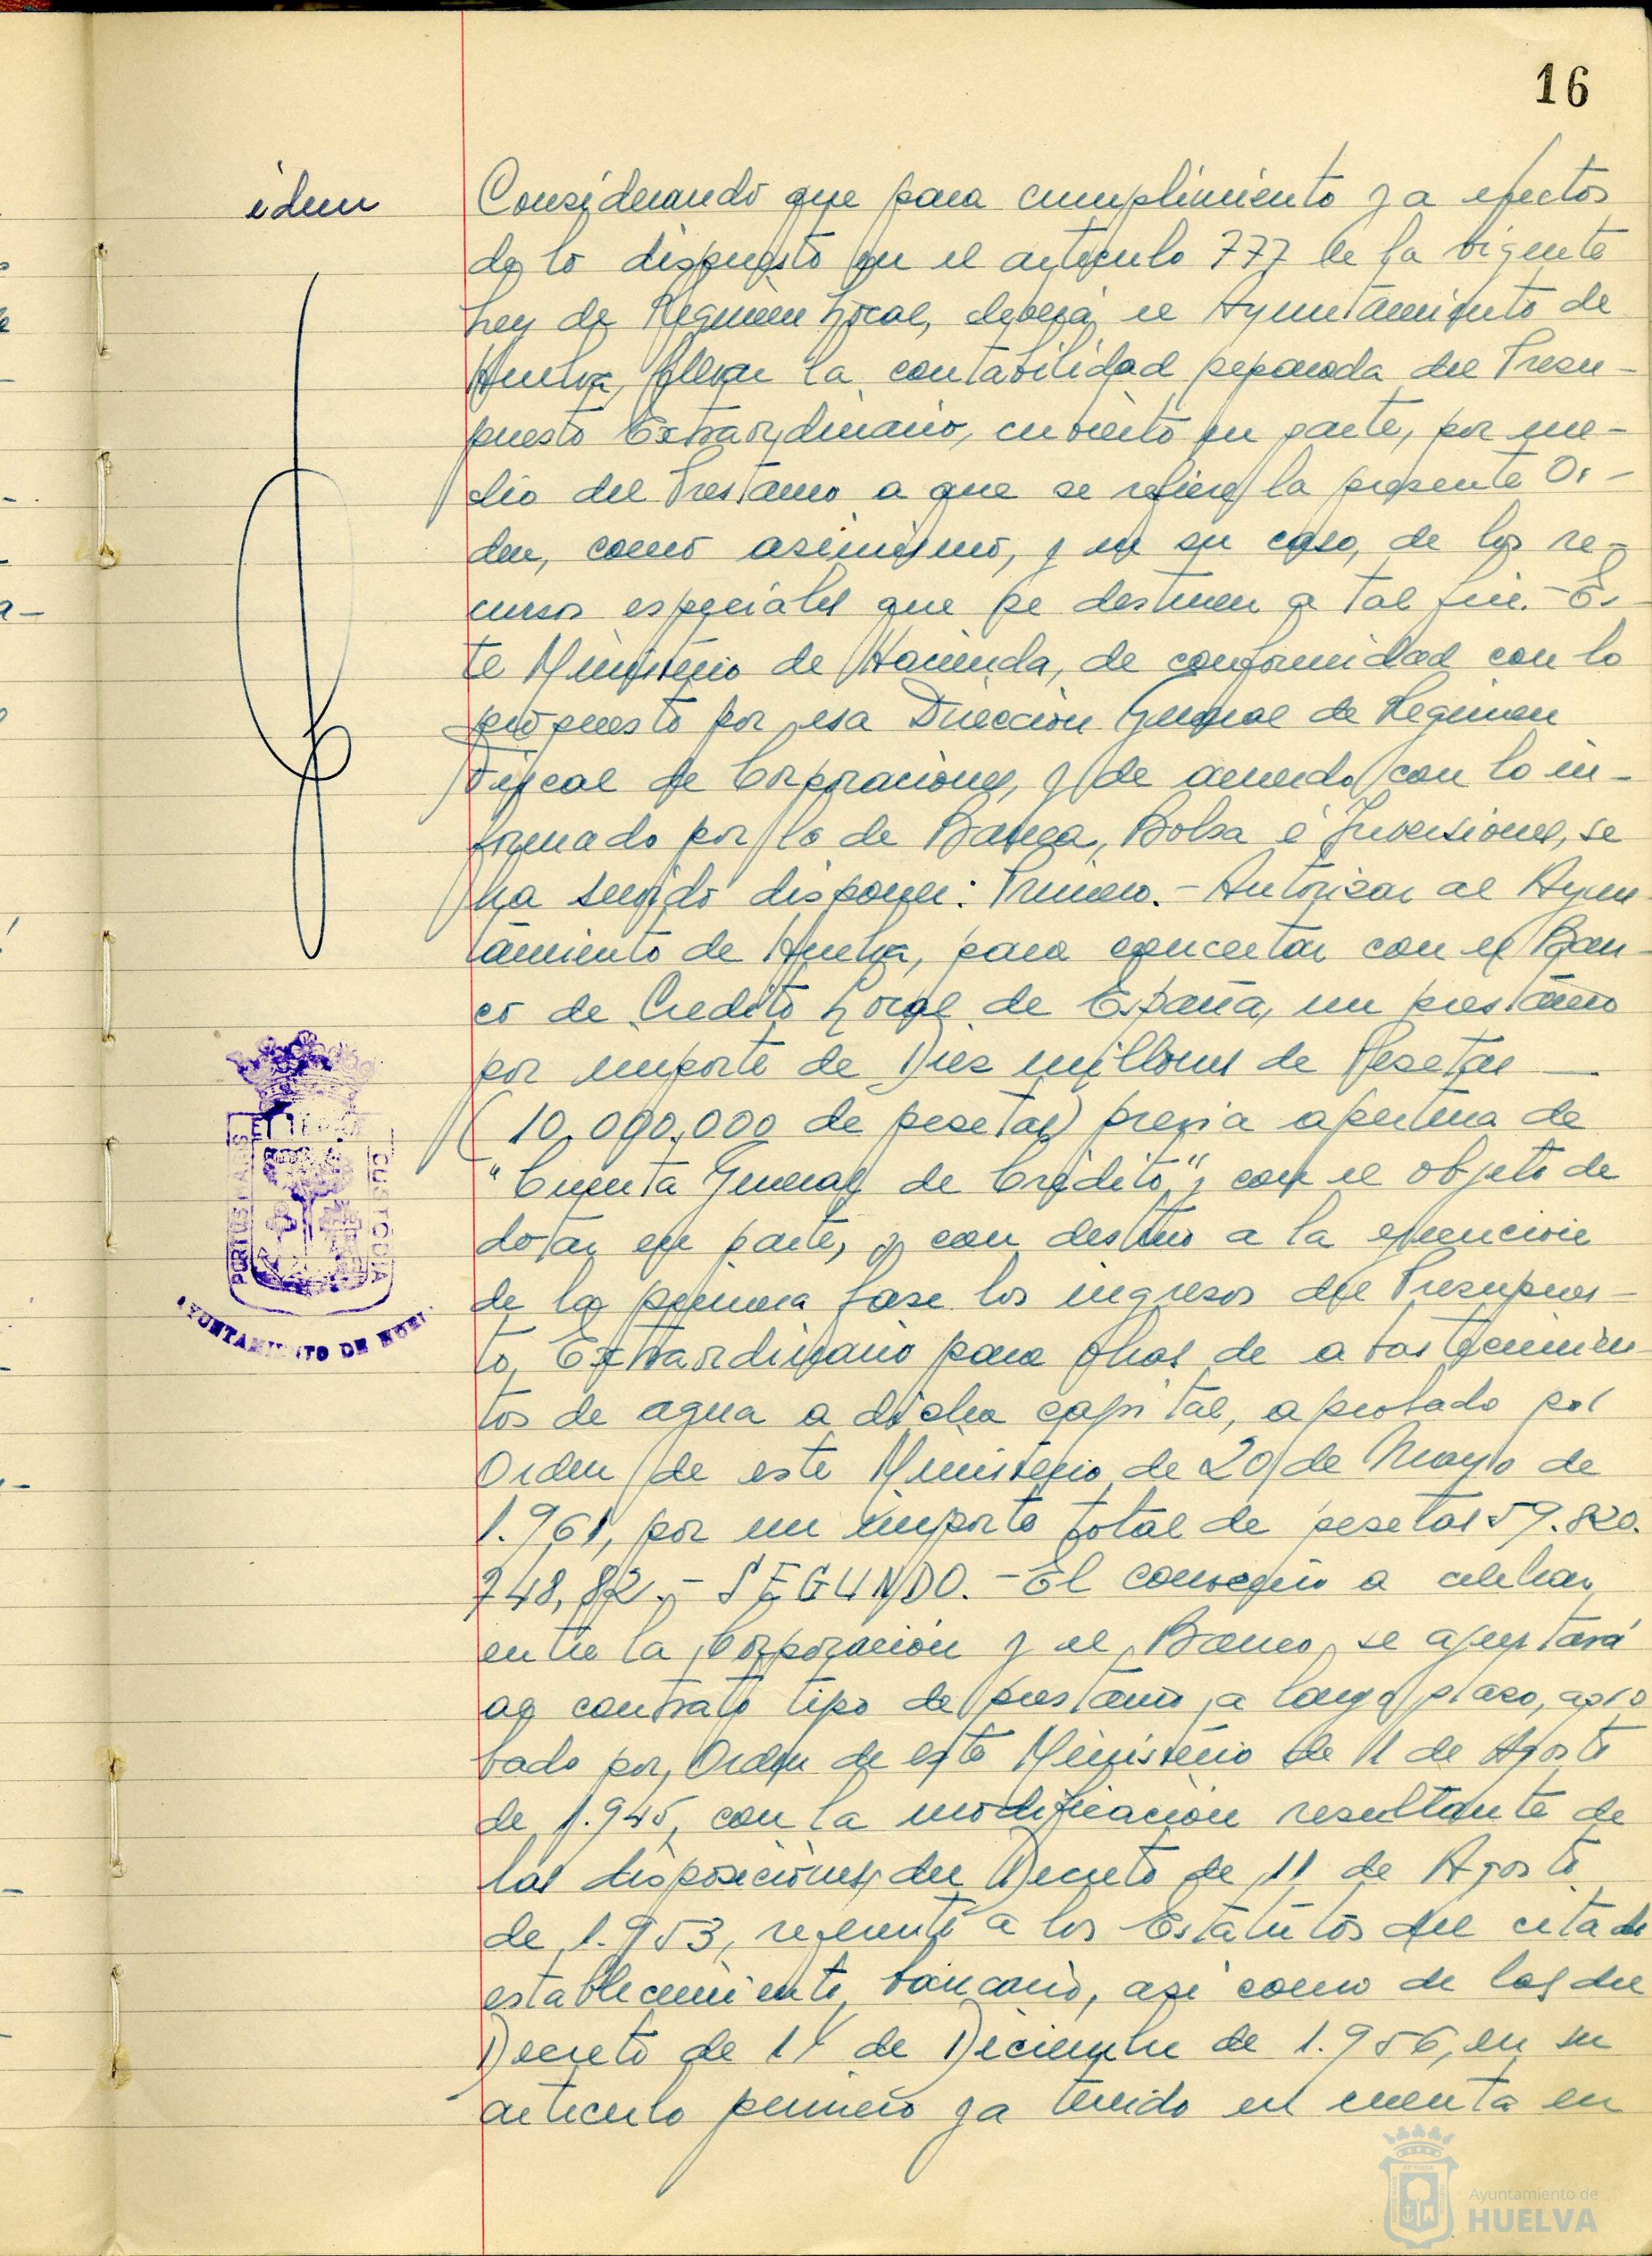 16
idem
Considerando que para cumplimiento y a efectos
de lo dispuesto en el articulo 777 de la vigente
Ley de Regimen Local, deberá el Ayuntamiento de
Huelva, llevar la contabilidad separada del Presu-
puesto Extraordinario, cubierto en parte, por me-
dio del Prestamo a que se refiere la presente Or-
den, como asimismo, y en su caso, de los re-
cursos especiales que se destinen a tal fin.- Es-
te Ministerio de Hacienda, de conformidad con lo
propuesto por esa Direccion General de Regimen
Fiscal de Corporaciones, y de acuerdo con lo in-
formado por la de Banca, Bolsa é Inversiones, se
ha servido disponer: Primero.- Autorizar al Ayun-
tamiento de Huelva, para concertar con el Ban-
co de Credito Local de España, un prestamo
por importe de Diez millones de Pesetas —
(10.000.000 de pesetas) previa apertura de
"Cuenta General de Crédito", con el objeto de
dotar en parte, y con destino a la ejecucion
de la primera fase los ingresos del Presupues-
to Extraordinario para obras de abastecimien
tos de agua a dicha capital, aprobado por
Orden de este Ministerio de 20 de Mayo de
1.961, por un importe total de pesetas 59.820.
748,82.- SEGUNDO.- El convenio a celebrar
entre la Corporacion y el Banco, se ajustará
al contrato tipo de prestamo a largo plazo, apro
bado por Orden de este Ministerio de 11 de Agosto
de 1.945, con la modificacion resultante de
las disposiciones del Decreto de 11 de Agosto
de 1.953, referente a los Estatutos del citado
establecimiento bancario, asi como de las del
Decreto de 14 de Diciembre de 1.956, en su
articulo primero ya tenido en cuenta en
PORTUS MARIS
ET TERRAE
CUSTODIA
AYUNTAMIENTO DE
Ayuntamiento de
HUELVA